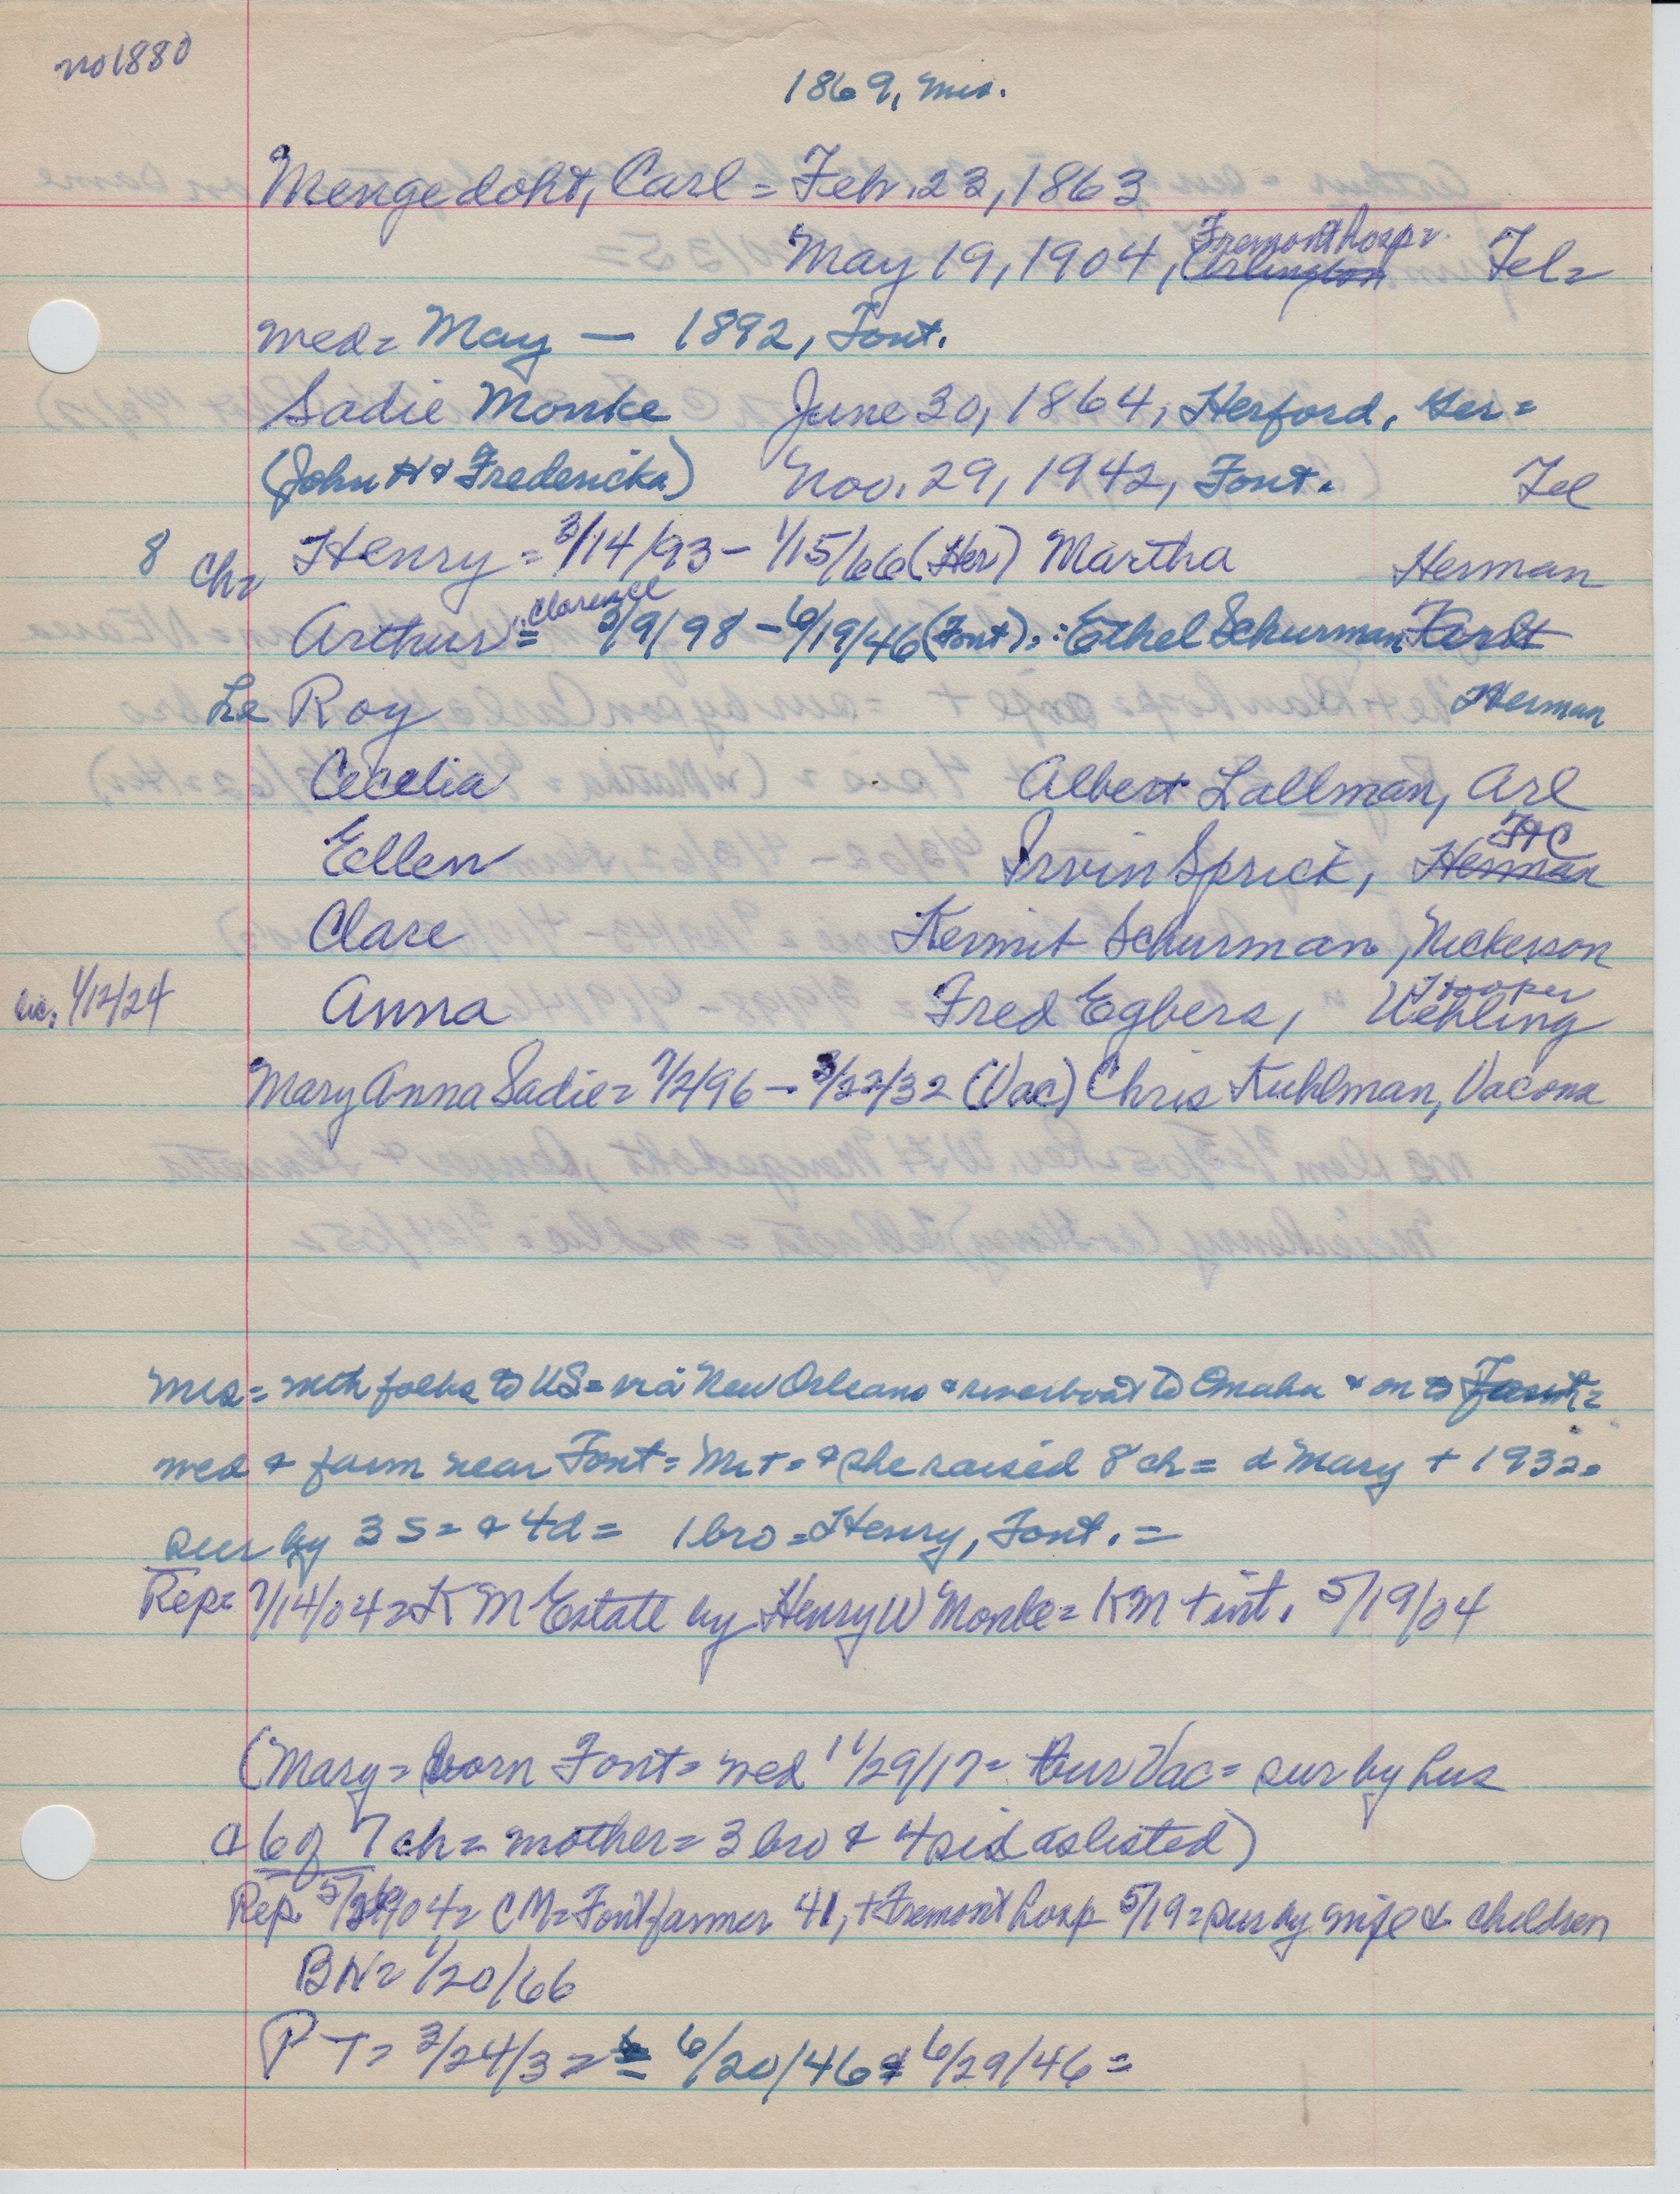 no 1880
1869, Mrs.
Mengedoht, Carl = Feb. 23, 1863
May 19, 1904, Arlington Fremont hosp = Tel =
wed = May — 1892, Font.
Sadie Monke June 30, 1864, Herford, Ger =
(John H & Fredericka) Nov. 29, 1942, Font. Tel
8 ch = Henry = 3/14/93 - 1/15/66 (Her) Martha Herman
Arthur Clarence = 3/9/98 - 6/19/46 (Font) = : Ethel Schurman, Font
Le Roy Herman
Cecelia Albert Lallman, Arl
Ellen Irvin Sprick, Herman FtC
Clare Kermit Schurman, Nickerson
lic. 1/12/24 Anna Fred Egbers, Uehling Hooper
Mary Anna Sadie = 7/2/96 - 3/22/32 (Vac) Chris Kuhlman, Vacona
Mrs = with folks to US = via New Orleans & riverboat to Omaha & on to Font =
wed & farm near Font = Mr + = & she raised 8 ch = d Mary + 1932 =
sur by 3 s = & 4 d = 1 bro = Henry, Font. =
Rep = 7/14/04 = K M Estate by Henry W Monke = KM + int. 5/19/04
(Mary = born Font = wed 11/29/17 = bur Vac = sur by hus
& 6 of 7 ch = mother = 3 bro & 4 sis as listed)
Rep. 04 = CM = Font farmer 41, + Fremont hosp 5/19 = sur by wife & children
BN = 1/20/66
PT = 3/24/32 = 6/20/46 & 6/29/46 =